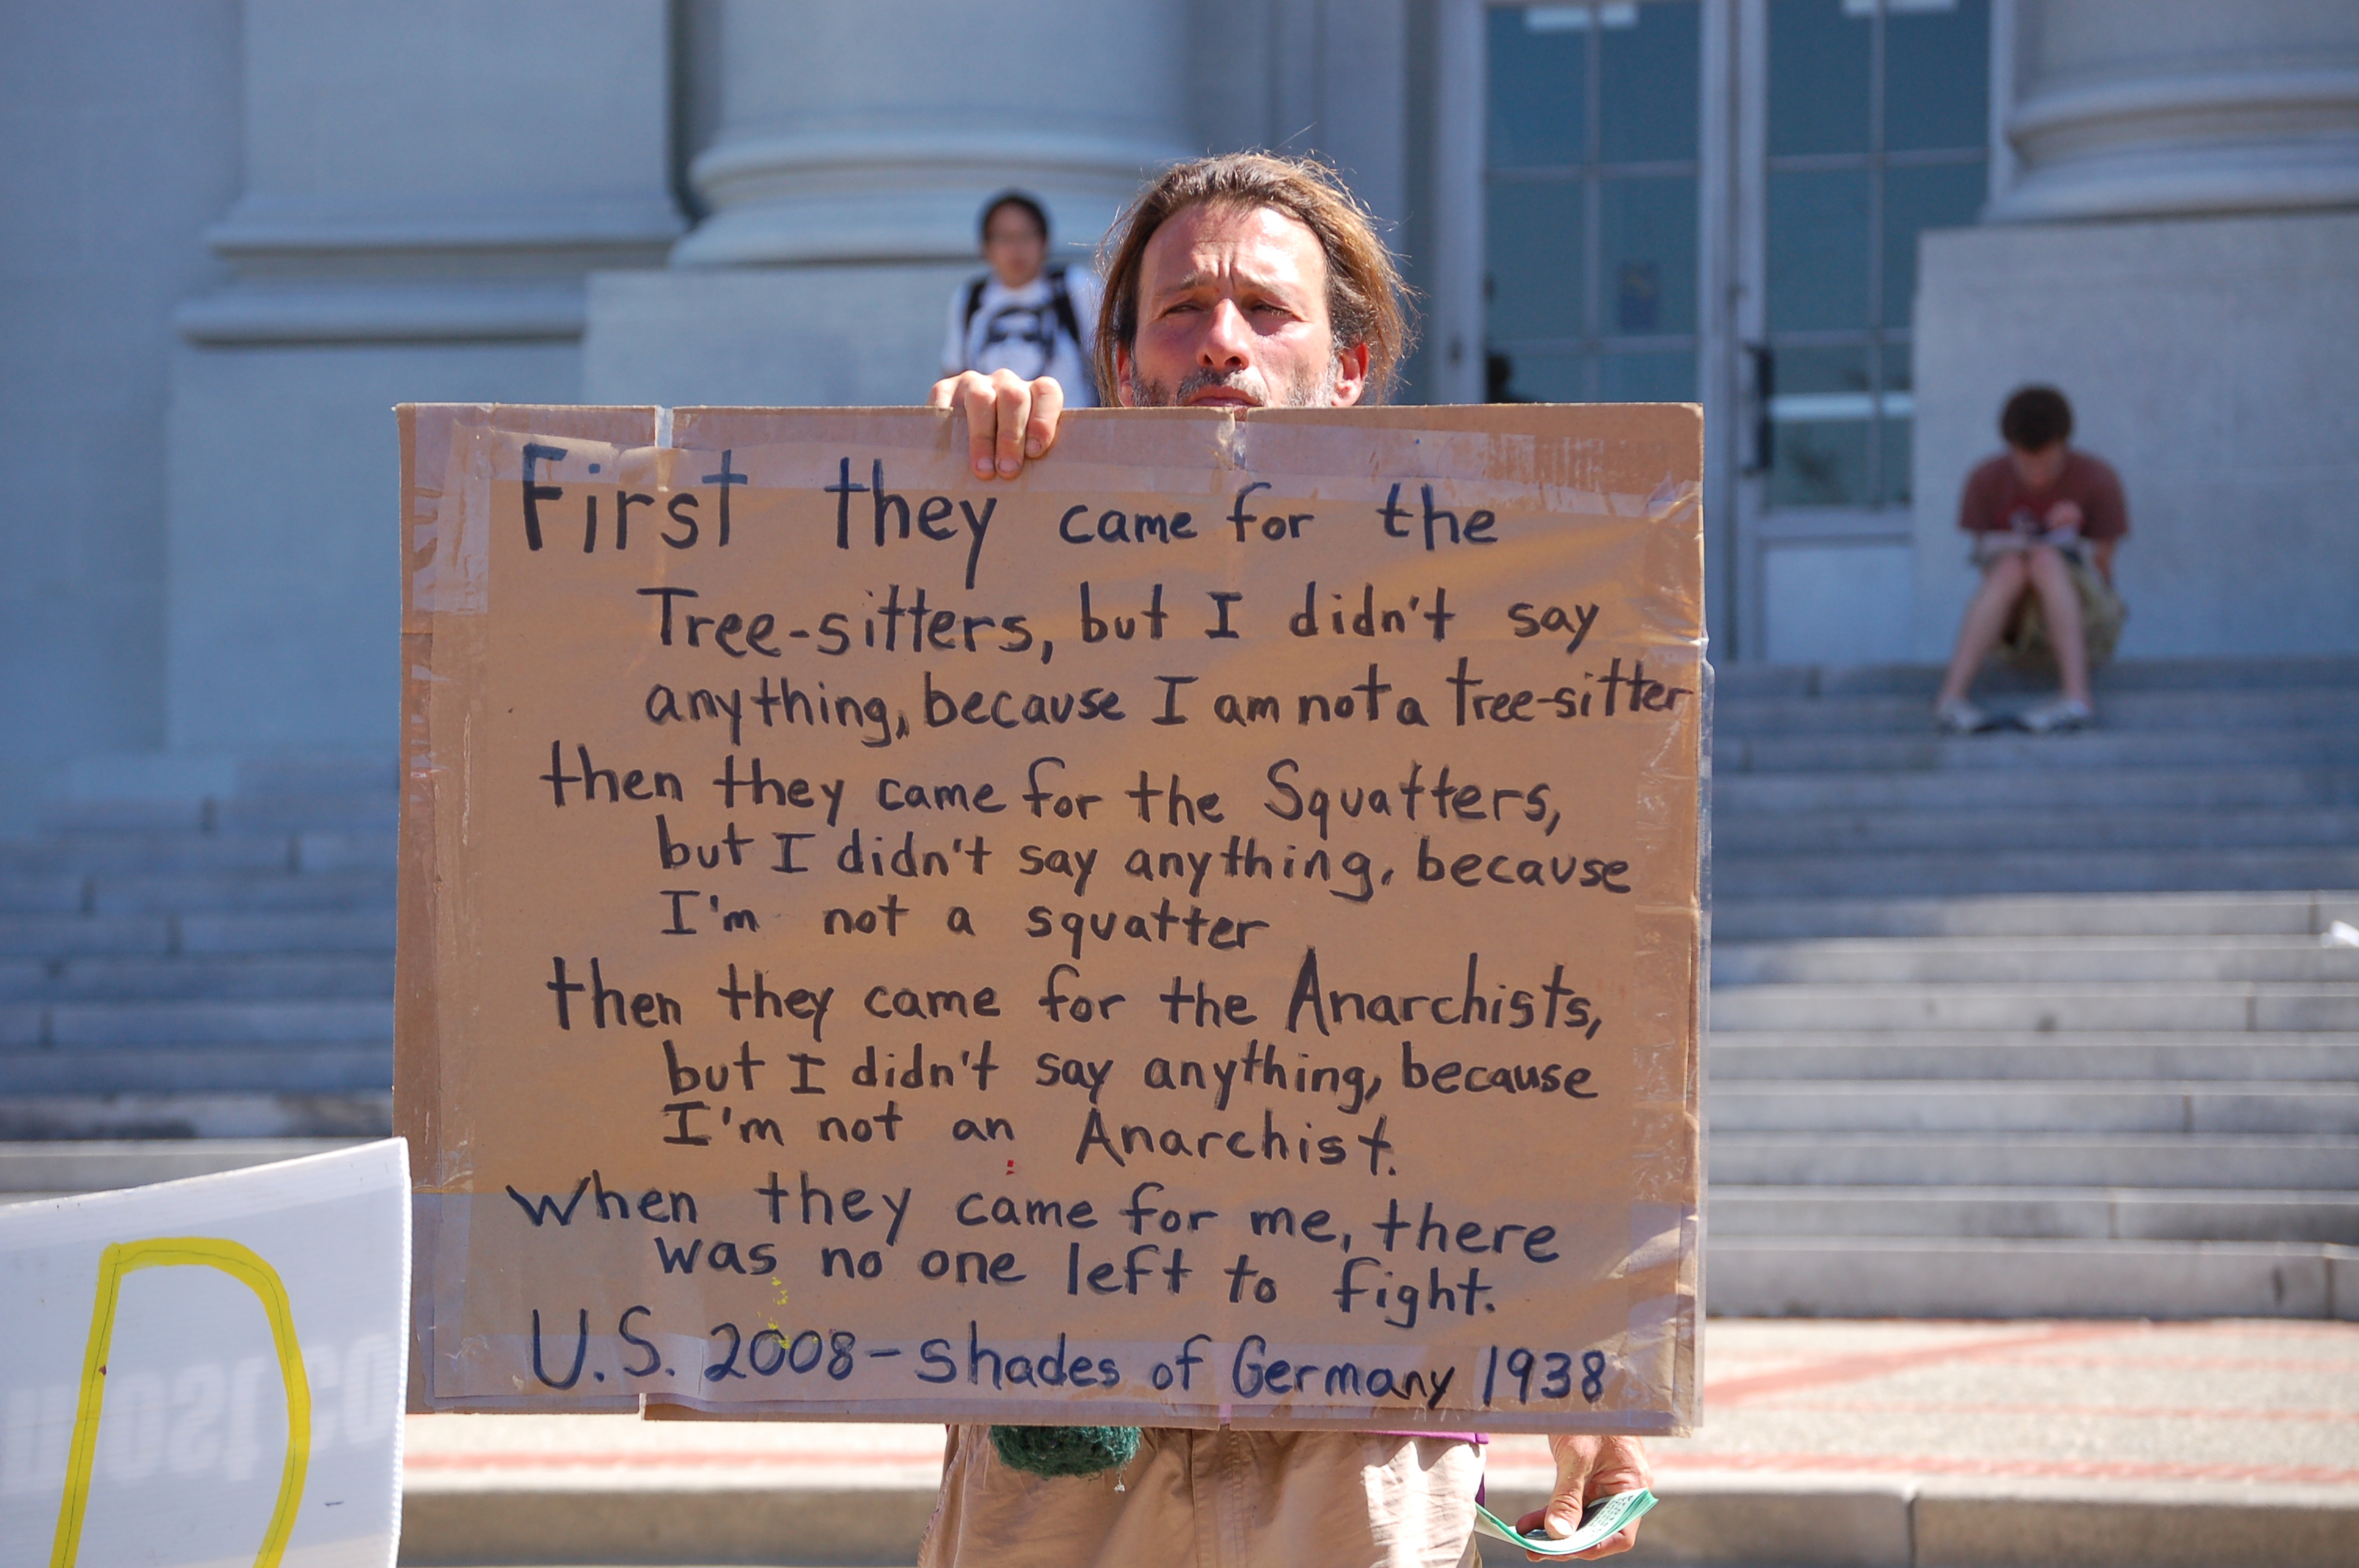 First they came for the
Tree-sitters, but I didn't say
anything, because I am not a tree-sitter
then they came for the Squatters,
but I didn't say anything, because
I'm not a squatter
then they came for the Anarchists,
but I didn't say anything, because
I'm not an Anarchist.
When they came for me, there
was no one left to fight.
U.S. 2008 - shades of Germany 1938
D